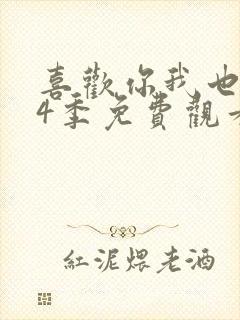 喜歡你我也
4季免費觀
紅泥煨老酒